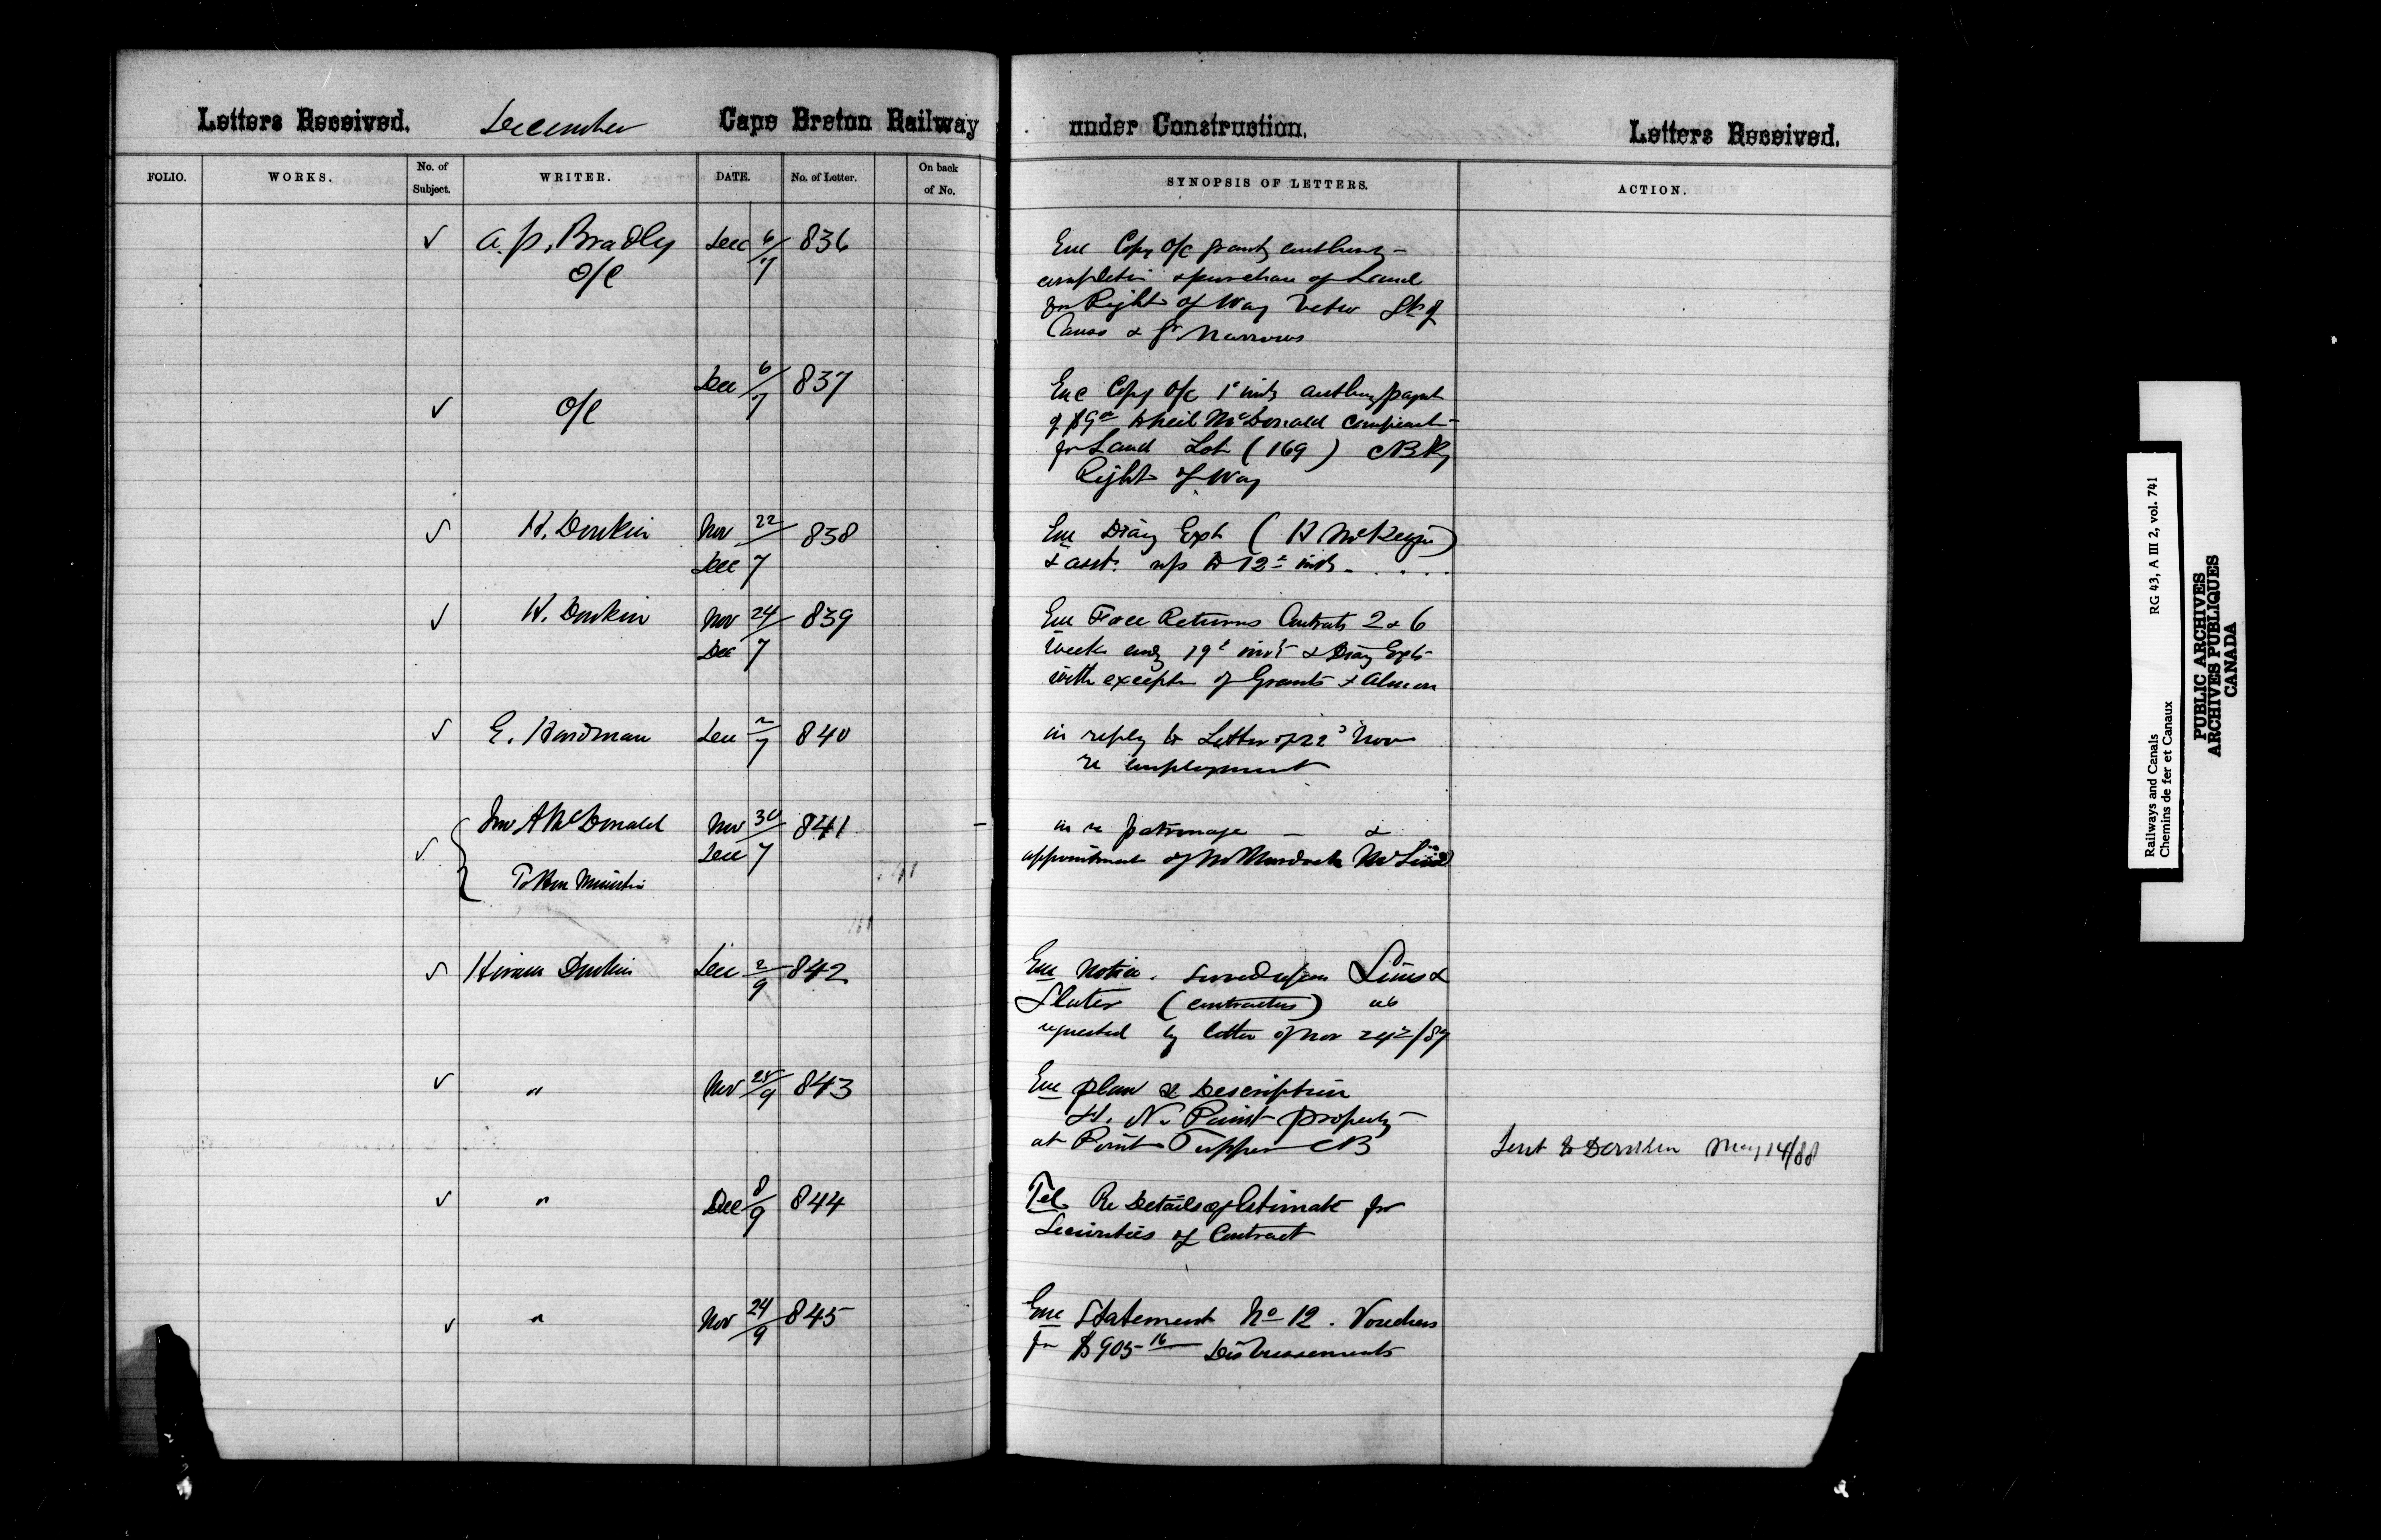 Letters Received. December Cape Breton Railway under Construction. Letters Received.
FOLIO. WORKS. No. of Subject. WRITER. DATE. No. of Letter. On back of No. SYNOPSIS OF LETTERS. ACTION.
✓ A. P. Bradley Dec 6/7 836
O/C
Enc Copy O/C
completn & purchase of Land
for Right of Way betw Sts of
Canso & Gr Narrows
Dec 6/7 837
✓ O/C
Enc Copy O/C 1st inst
McDonald
for Land Lot (169) CBRy
Right of Way
✓ H. Donkin Nov 22/ 838
Dec 7
Enc Diary Exp
& asst. up to 12th inst
✓ H. Donkin Nov 24/ 839
Dec 7
Enc Force Returns Contracts 2 & 6
week endg 19th inst & Diary Expts
with exceptn of Grants & Almon
✓ E. Hardman Dec 2/7 840
in reply to Letter of 22d Nov
re employment
✓ Jno A McDonald Nov 30/ 841
Dec 7
To Hon Minister
in re patronage — &
appointment of Mr Murdoch
✓ Hiram Donkin Dec 2/9 842
Enc Notice. served upon Sims &
Slater (contractors) as
requested by letter of Nov 24th/87
✓ " Nov 25/9 843
Enc plan & Description
H. N. Paint property
at Point Tupper CB
Sent to Donkin May 14/88
✓ " Dec 8/9 844
Tel Re Details of Estimate for
Securities of Contract
✓ " Nov 24/9 845
Enc Statement No 12. Vouchers
for $905 16 Disbursements
Railways and Canals RG 43, A III 2, vol. 741
Chemins de fer et Canaux
PUBLIC ARCHIVES
ARCHIVES PUBLIQUES
CANADA